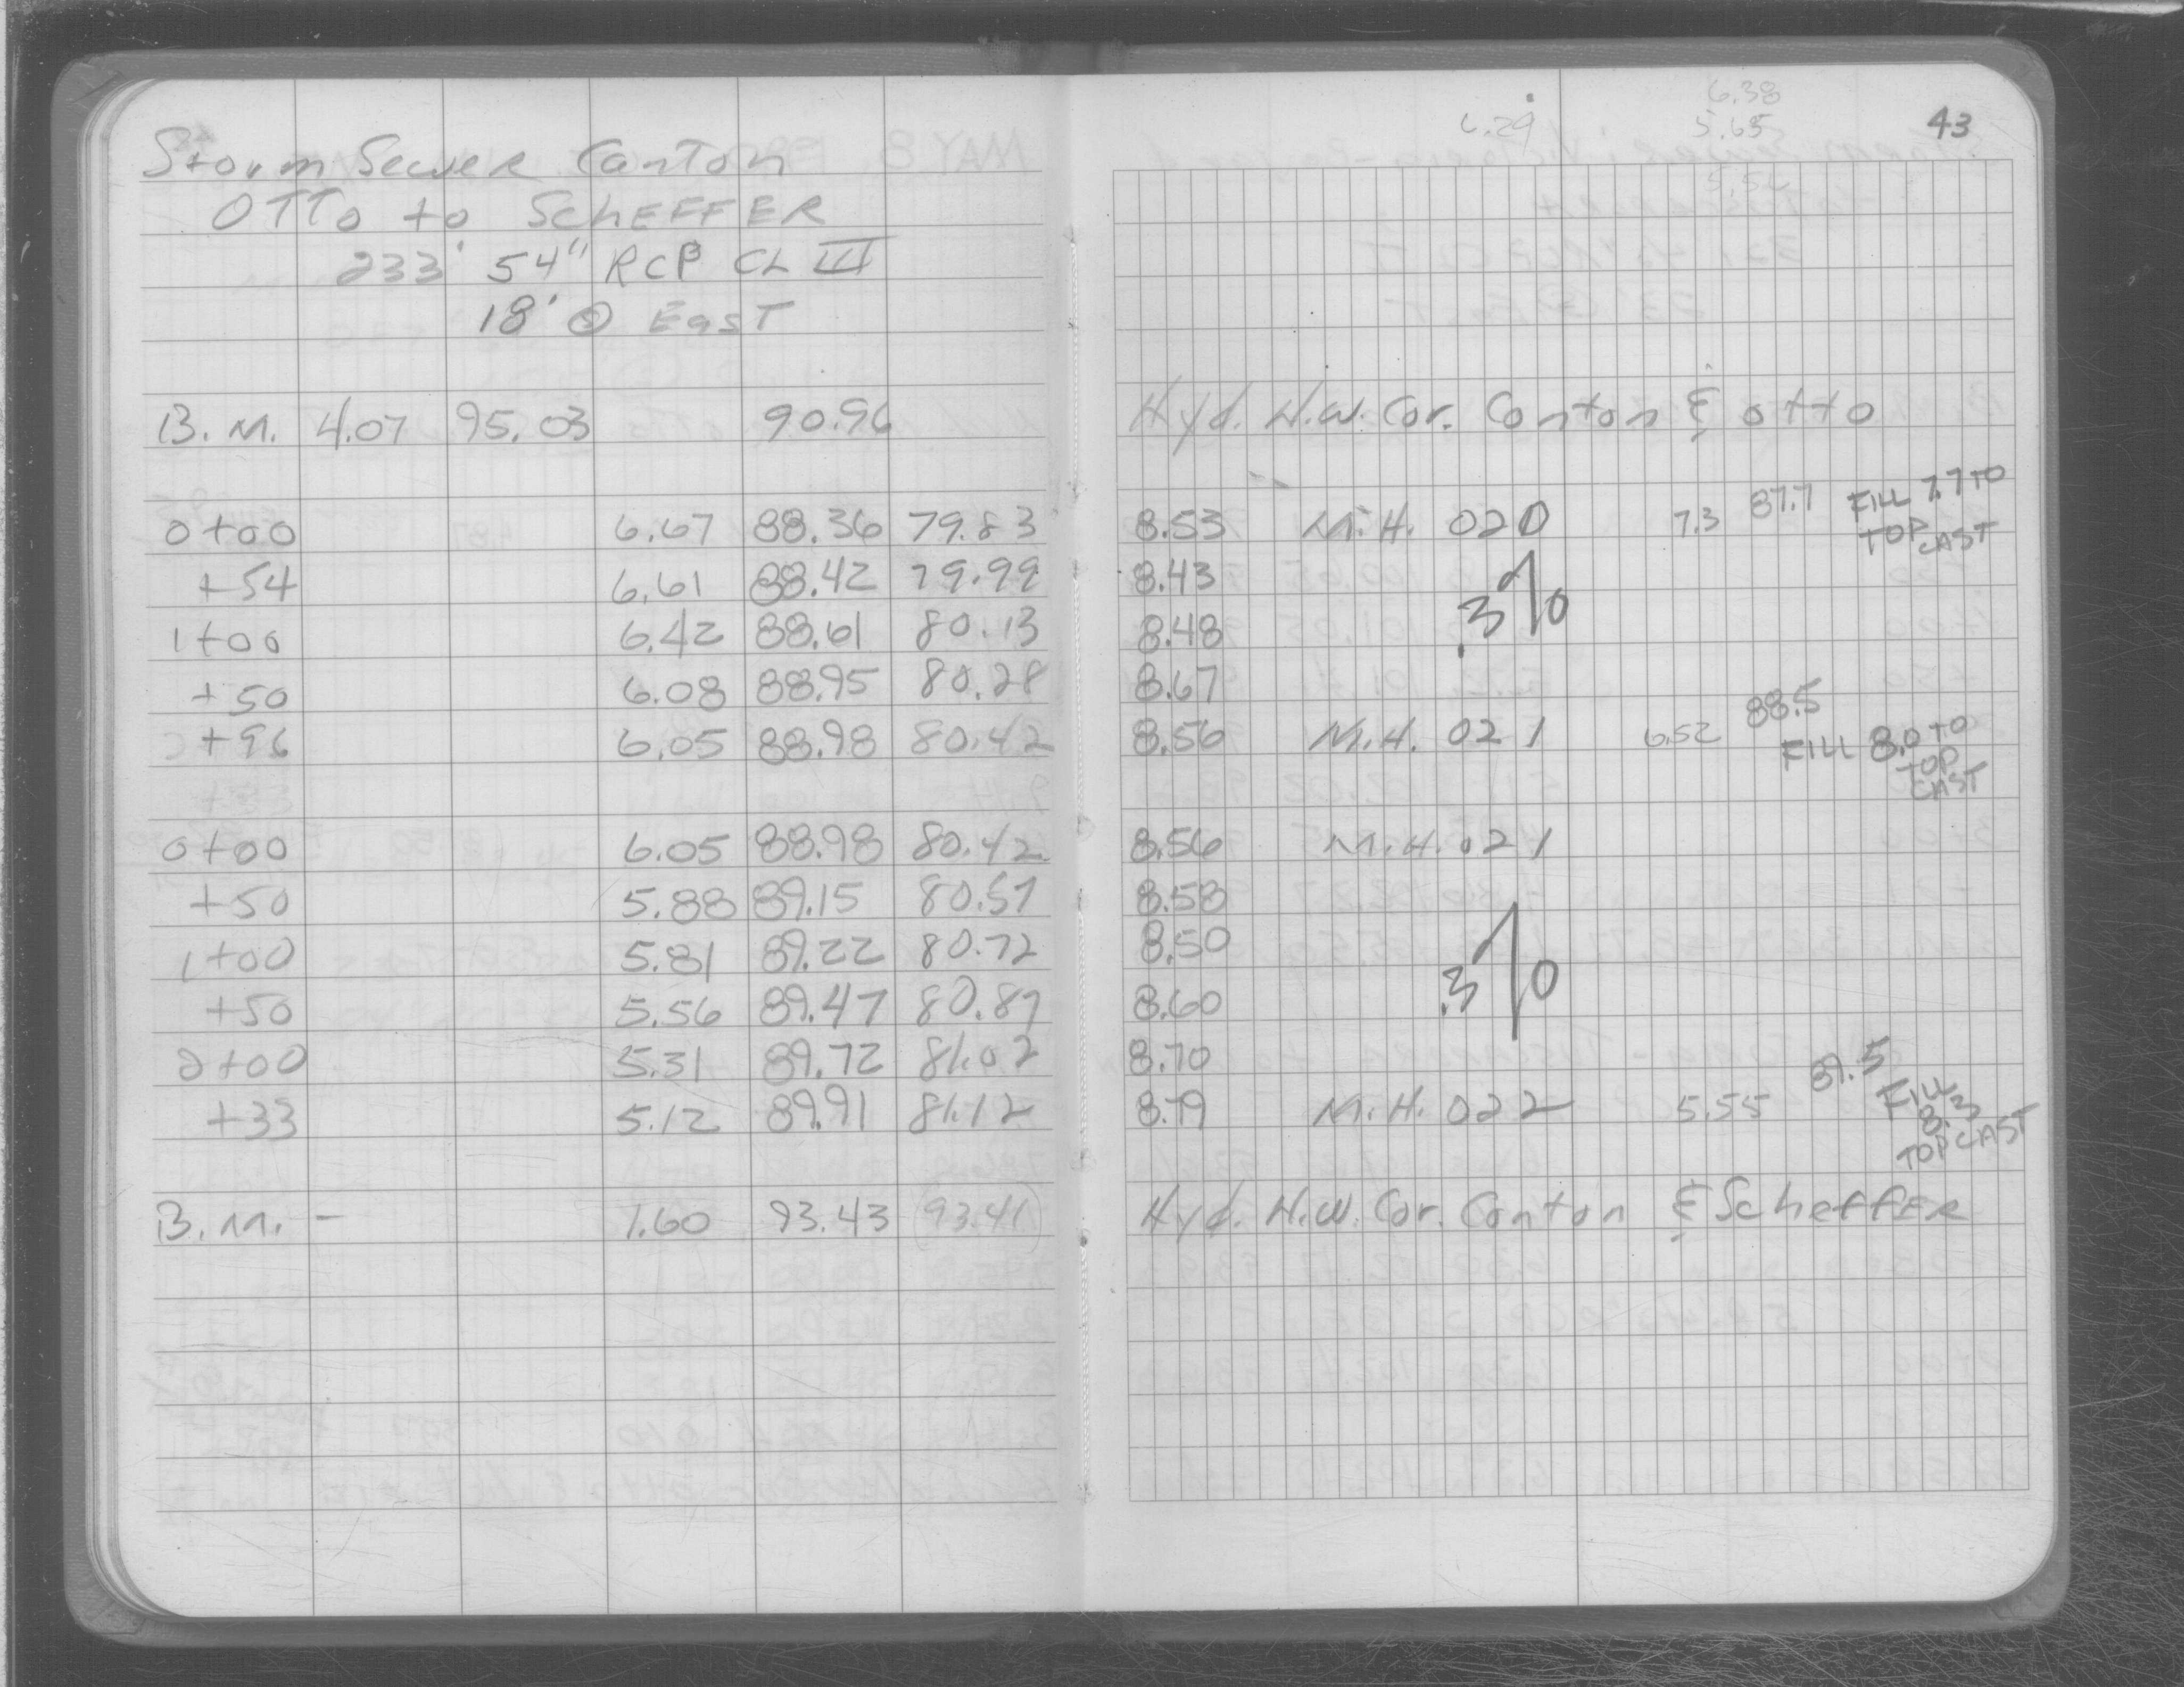 Storm Sewer Canton
OTTo to ScHEFFER
233' 54" RCP CL III
18' @ East
B.M. 4.07 95.03 90.96
0+00 6.67 88.36 79.83
+54 6.61 88.42 79.99
1+00 6.42 88.61 80.13
+50 6.08 88.95 80.28
+96 6.05 88.98 80.42
0+00 6.05 88.98 80.42
+50 5.88 89.15 80.57
1+00 5.81 89.22 80.72
+50 5.56 89.47 80.87
2+00 5.31 89.72 81.02
+33 5.12 89.91 81.12
B.M. - 1.60 93.43 (93.41)
6.38
6.29 5.65 43
Hyd. N.W. Cor. Canton & otto
8.53 M.H. 020 7.3 87.7 FILL 7.7 TO
TOP CAST
8.43
.3%
8.48
8.67
88.5
8.56 M.H. 021 6.52 FILL 8.0 TO
TOP
CAST
8.56 M.H. 021
8.58
8.50
.3%
8.60
8.70
89.5
8.79 M.H. 022 5.55 FILL
8.3
TOP CAST
Hyd. N.W. Cor. Canton & SchefFER